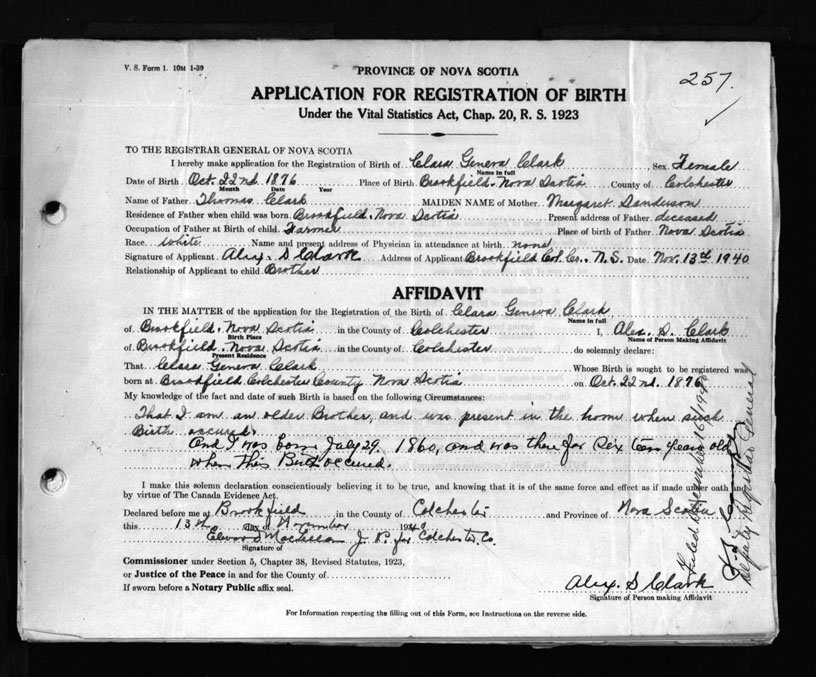 V. S. Form 1. 10M 1-39
PROVINCE OF NOVA SCOTIA
257.
APPLICATION FOR REGISTRATION OF BIRTH
Under the Vital Statistics Act, Chap. 20, R. S. 1923
TO THE REGISTRAR GENERAL OF NOVA SCOTIA
I hereby make application for the Registration of Birth of Clara Geneva Clark Sex Female
Name in full
Date of Birth Oct. 22nd. 1876 Place of Birth Brookfield. Nova Scotia County of Colchester
Month Date Year
Name of Father Thomas Clark MAIDEN NAME of Mother Margaret Sanderson
Residence of Father when child was born Brookfield. Nova Scotia Present address of Father deceased
Occupation of Father at Birth of child Farmer Place of birth of Father Nova Scotia
Race White Name and present address of Physician in attendance at birth none
Signature of Applicant Alex. S Clark Address of Applicant Brookfield Col. Co. N. S. Date Nov. 13th 1940
Relationship of Applicant to child Brother
AFFIDAVIT
IN THE MATTER of the application for the Registration of the Birth of Clara Geneva Clark
Name in full
of Brookfield. Nova Scotia in the County of Colchester I, Alex. S. Clark
Birth Place Name of Person Making Affidavit
of Brookfield. Nova Scotia in the County of Colchester do solemnly declare:
Present Residence
That Clara Geneva Clark Whose Birth is sought to be registered was
born at Brookfield Colchester County Nova Scotia on Oct. 22nd. 1876
My knowledge of the fact and date of such Birth is based on the following Circumstances:
That I am an older Brother, and was present in the home when such
Birth occured.
And I was born July 29. 1860, and was then for Six teen years old
when This Birth occured.
I make this solemn declaration conscientiously believing it to be true, and knowing that it is of the same force and effect as if made under oath and
by virtue of The Canada Evidence Act.
Declared before me at Brookfield in the County of Colchester and Province of Nova Scotia
this 13th day of November 1940
J. P. for Colchester Co.
Signature of
Commissioner under Section 5, Chapter 38, Revised Statutes, 1923,
or Justice of the Peace in and for the County of
If sworn before a Notary Public affix seal.
Alex. S Clark
Signature of Person making Affidavit
For Information respecting the filling out of this Form, see Instructions on the reverse side.
Filed December 16, 1940
Deputy Registrar General